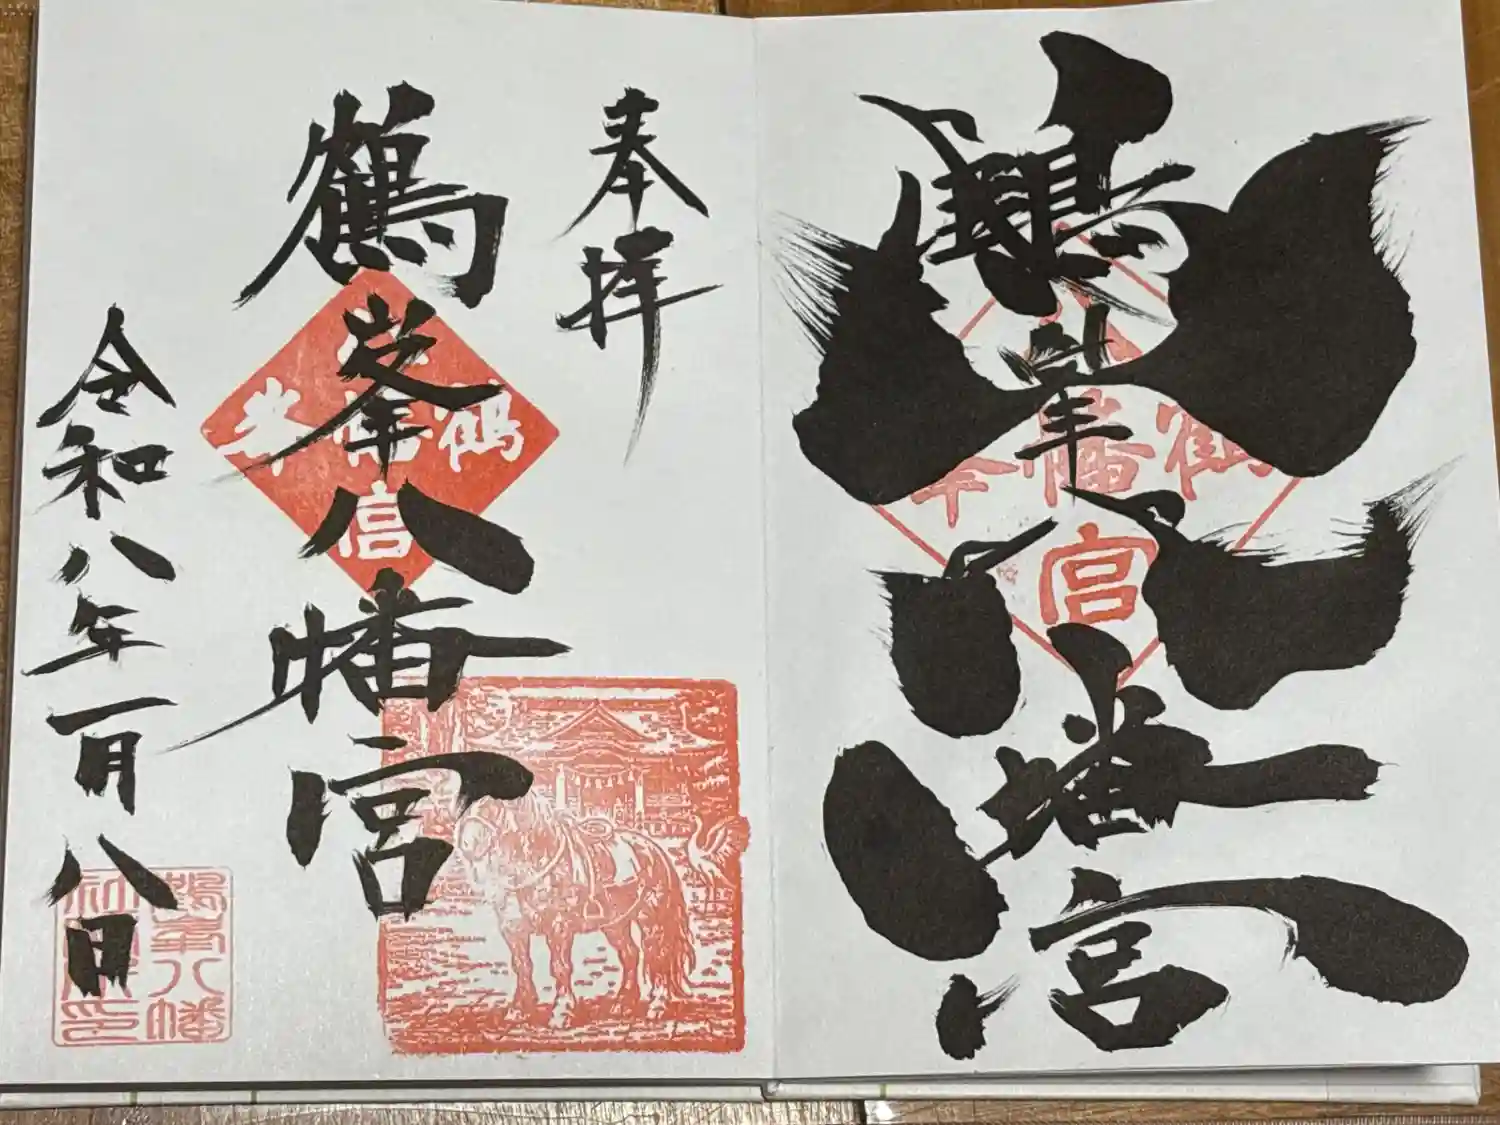 鶴峯八幡宮
鶴八幡宮峯
奉拝
鶴峯八幡宮
鶴八幡宮峯
令和八年一月八日
鶴峯八幡